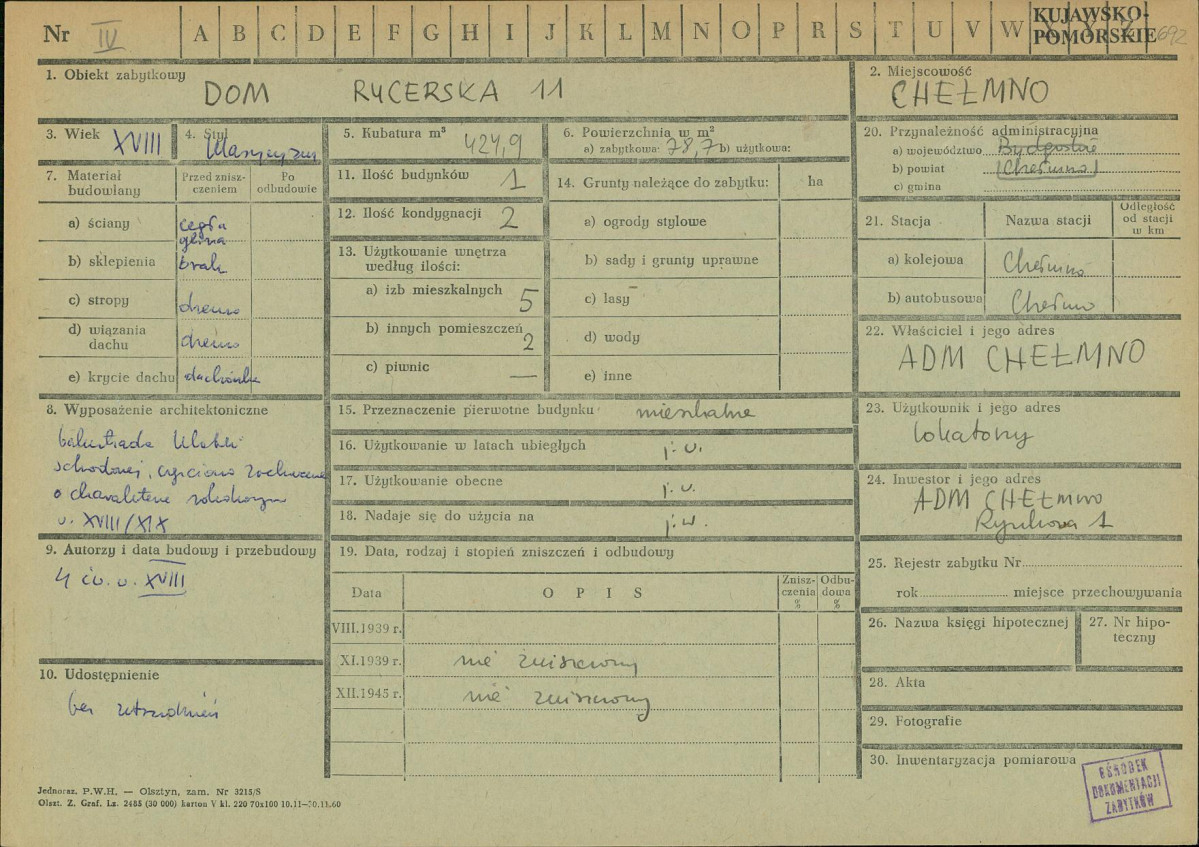 Nr IV A B C D E F G H I J K L M N O P R S T U V W Y Z 692
KUJAWSKO-
POMORSKIE
1. Obiekt zabytkowy
DOM RYCERSKA 11
2. Miejscowość
CHEŁMNO
3. Wiek XVIII
4. Styl
klasycyzm
5. Kubatura m³
424,9
6. Powierzchnia w m²
a) zabytkowa: 78,7 b) użytkowa:
20. Przynależność administracyjna
a) województwo Bydgoskie
b) powiat (Chełmno)
c) gmina
7. Materiał
budowlany
Przed znisz-
czeniem
Po
odbudowie
a) ściany cegła
glina
b) sklepienia brak
c) stropy drewno
d) wiązania
dachu drewno
e) krycie dachu dachówka
11. Ilość budynków 1
12. Ilość kondygnacji 2
13. Użytkowanie wnętrza
według ilości:
a) izb mieszkalnych 5
b) innych pomieszczeń
2
c) piwnic —
14. Grunty należące do zabytku: ha
a) ogrody stylowe
b) sady i grunty uprawne
c) lasy
d) wody
e) inne
21. Stacja Nazwa stacji
Odległość
od stacji
w km
a) kolejowa Chełmno
b) autobusowa Chełmno
22. Właściciel i jego adres
ADM CHEŁMNO
8. Wyposażenie architektoniczne
balustrada klatki
schodowej, częściowo zachowana
o charakterze rokokowym
w. XVIII/XIX
15. Przeznaczenie pierwotne budynku mieszkalne
16. Użytkowanie w latach ubiegłych j. w.
17. Użytkowanie obecne j. w.
18. Nadaje się do użycia na j. w.
23. Użytkownik i jego adres
lokatorzy
24. Inwestor i jego adres
ADM CHEŁMNO
Rynkowa 1
9. Autorzy i data budowy i przebudowy
4 ćw. w. XVIII
19. Data, rodzaj i stopień zniszczeń i odbudowy
Data O P I S
Znisz-
czenia
%
Odbu-
dowa
%
VIII.1939 r.
XI.1939 r. nie zniszczony
XII.1945 r. nie zniszczony
25. Rejestr zabytku Nr
rok miejsce przechowywania
26. Nazwa księgi hipotecznej
27. Nr hipo-
teczny
10. Udostępnienie
bez utrudnień
28. Akta
29. Fotografie
30. Inwentaryzacja pomiarowa
OŚRODEK
DOKUMENTACJI
ZABYTKÓW
Jednoraz. P.W.H. — Olsztyn, zam. Nr 3215/S
Olszt. Z. Graf. Lz. 2485 (30 000) karton V kl. 220 70x100 10.11—30.11.60